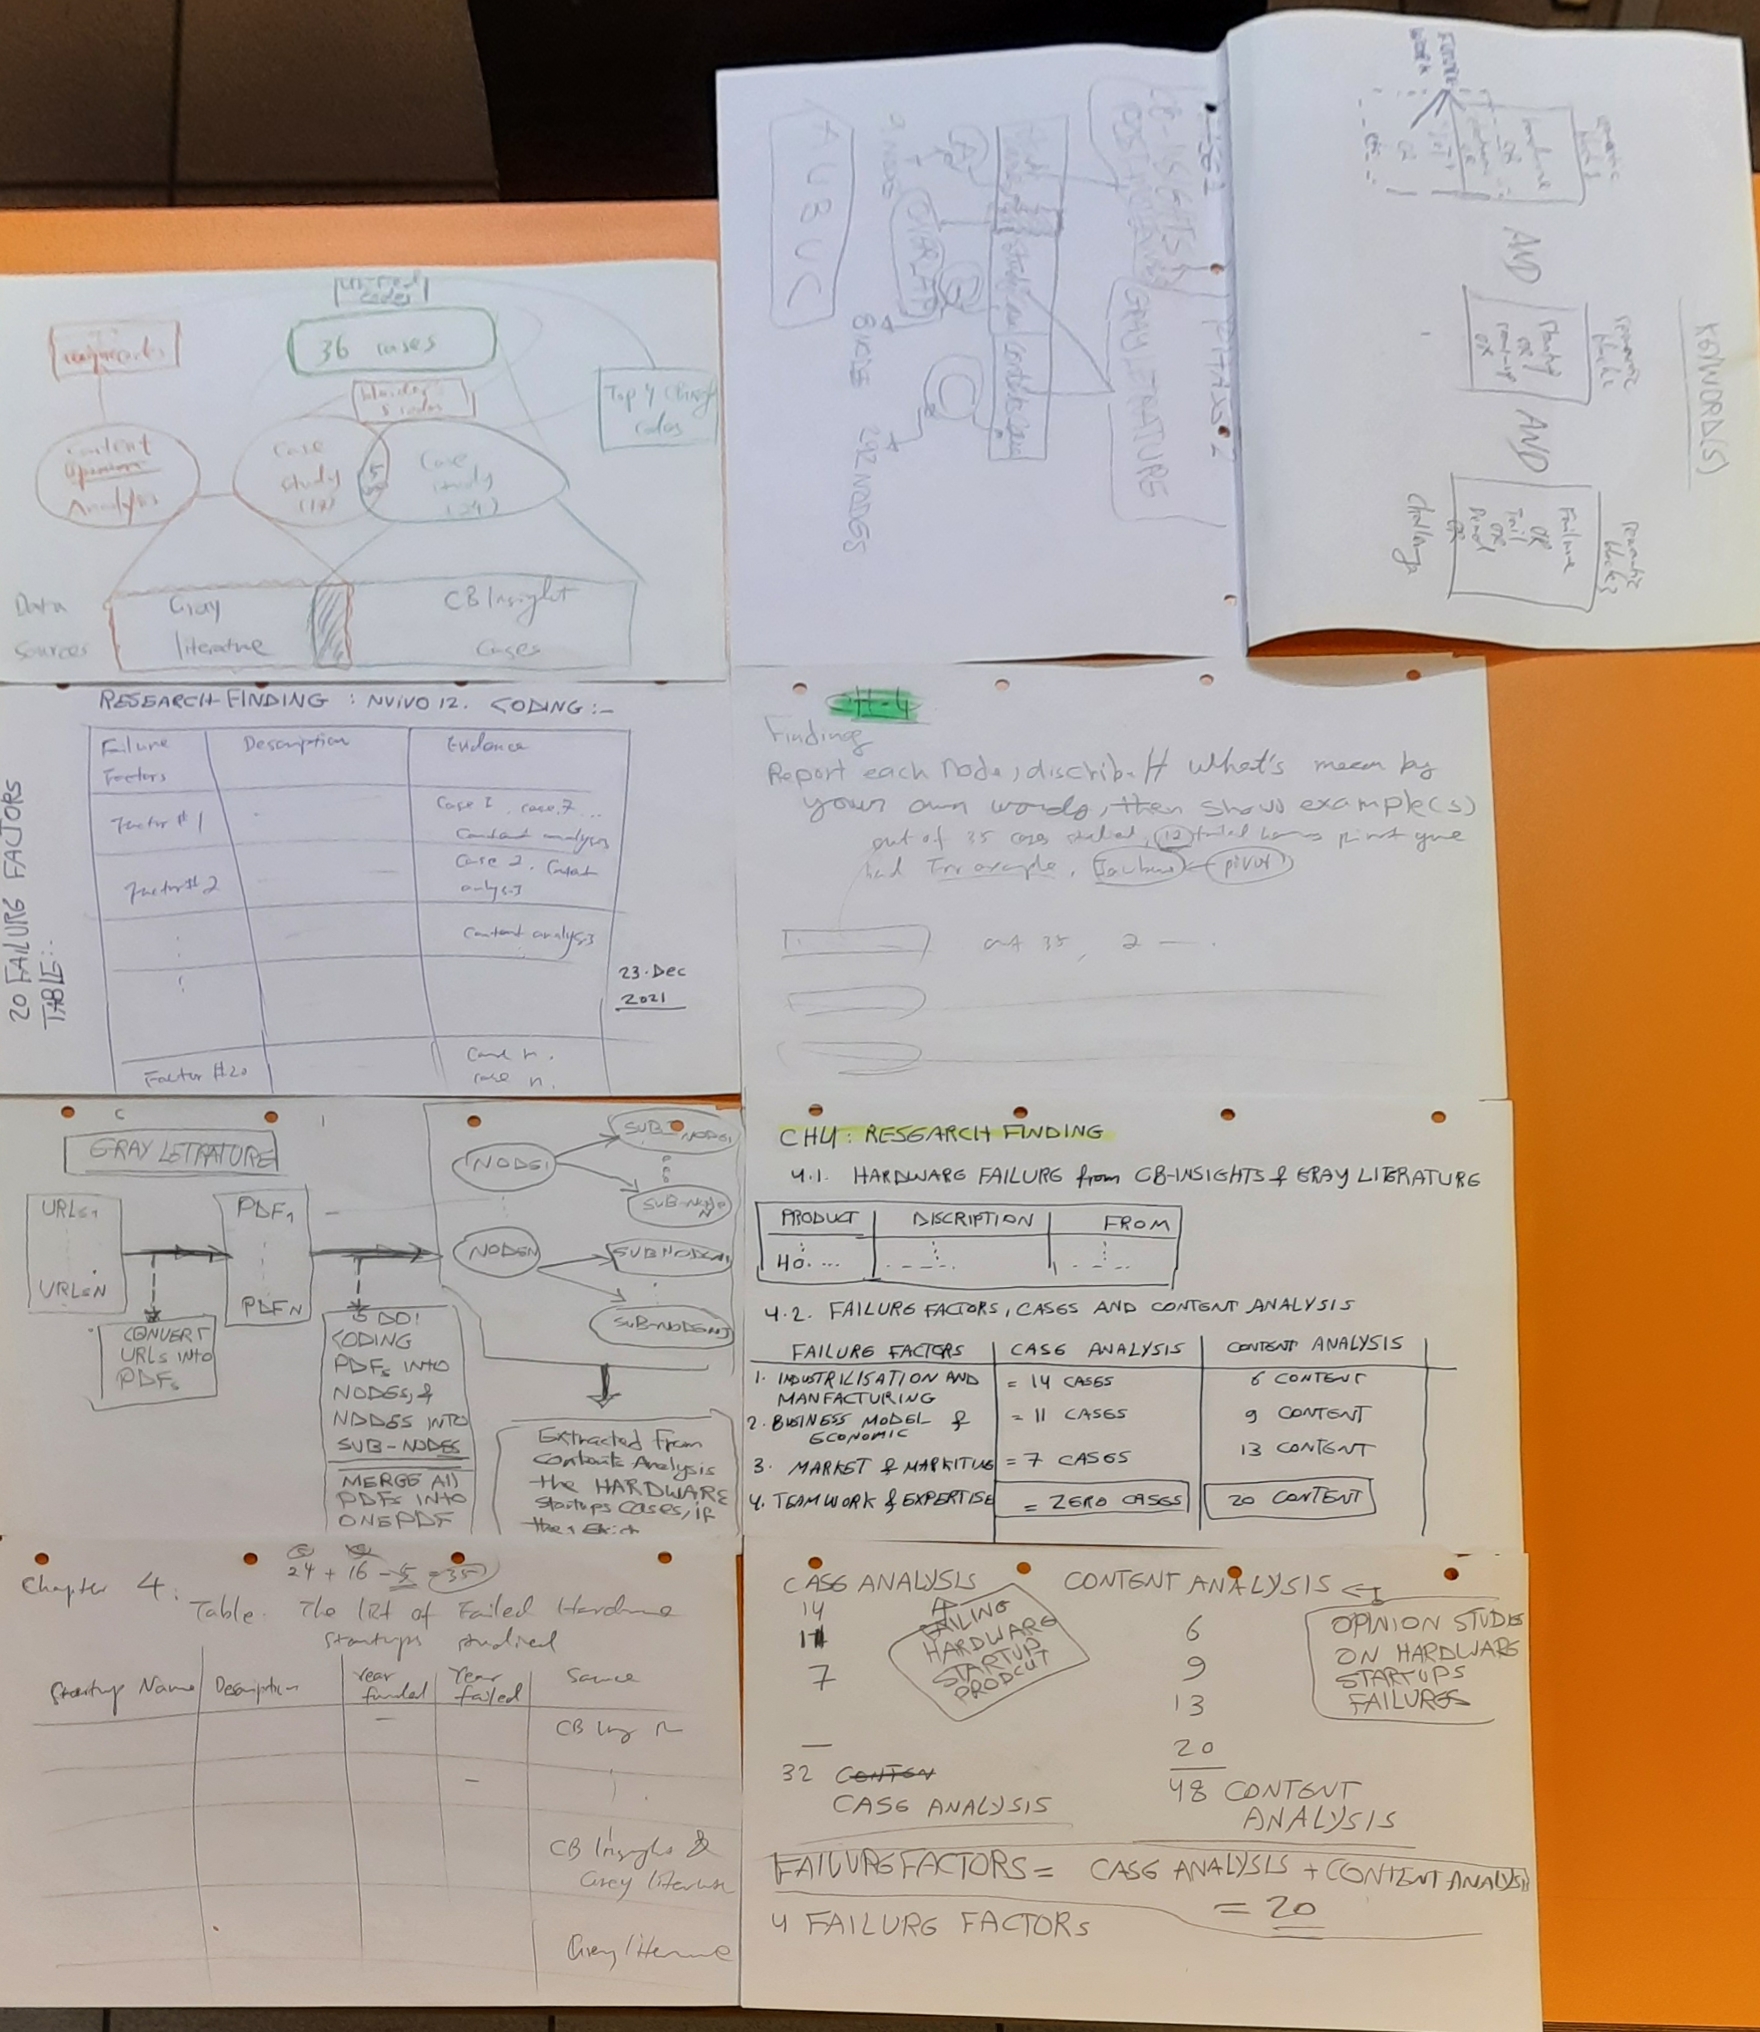 36 cases
Top 4
codes
Content
Analysis
Case
study
Case
study
(24)
5
Data
Sources
Gray
literature
CB Insight
Cases
KEYWORD(S)
AND
AND
Failure
OR
Fail
OR
OR
challenge
FUTURE
WORK
PHASE 2
GRAY LETRATURE
A
B
C
OVERLAP
292 NODES
A U B U C
RESEARCH FINDING : NVIVO 12. CODING :-
20 FAILURG FACTORS
TABLE:.
Failure
Factors
Description
Evidence
Factor #1
Case 1, case 7...
Content analysis
Factor #2
Case 2, Content
analysis
Content analysis
23. Dec
2021
Factor #20
Case n.
case n.
CH-4
Finding
Report each Node, discribe it what's mean by
your own words, then show example(s)
out of 35 cases studied, 12 failed
had For example, pivot
out 35, 2 — .
GRAY LETRATURE
URLS1
URLSN
PDF1
PDFN
CONVERT
URLs INTO
PDFs
DO!
CODING
PDFs INTO
NODES, &
NODES INTO
SUB-NODES
MERGE All
PDFs INTO
ONE PDF
NODE1
NODEN
SUB-NODE1
SUB-NODE
N
SUBNODEN1
SUB-NODENN
Extracted from
Contents Analysis
the HARDWARE
Startups Cases, if
CH4: RESEARCH FINDING
4.1. HARDWARE FAILURG from CB-INSIGHTS & GRAY LITERATURE
PRODUCT
DISCRIPTION
FROM
40. ...
4.2. FAILURG FACTORS, CASES AND CONTENT ANALYSIS
FAILURG FACTORS
CASE ANALYSIS
CONTENT ANALYSIS
1. INDUSTRILISATION AND
MANFACTURING
= 14 CASES
6 CONTENT
2. BUSINESS MODEL &
ECONOMIC
= 11 CASES
9 CONTENT
3. MARKET & MARKITING
= 7 CASES
13 CONTENT
4. TEAMWORK & EXPERTISE
= ZERO CASES
20 CONTENT
24 + 16 - 5 = 35
Chapter 4.
Table. The list of Failed Hardware
Startups studied
Startup Name
Description
Year
funded
Year
failed
Source
CB
CB Insights &
Grey literature
Grey literature
CASE ANALYSIS
14
11
7
—
32 CONTEN
CASE ANALYSIS
FAILING
HARDWARE
STARTUP
PRODCUT
CONTENT ANALYSIS
6
9
13
20
48 CONTENT
ANALYSIS
OPINION STUDIES
ON HARDWARE
STARTUPS
FAILURES
FAILURG FACTORS = CASE ANALYSIS + CONTENT ANALYSIS
= 20
4 FAILURG FACTORS